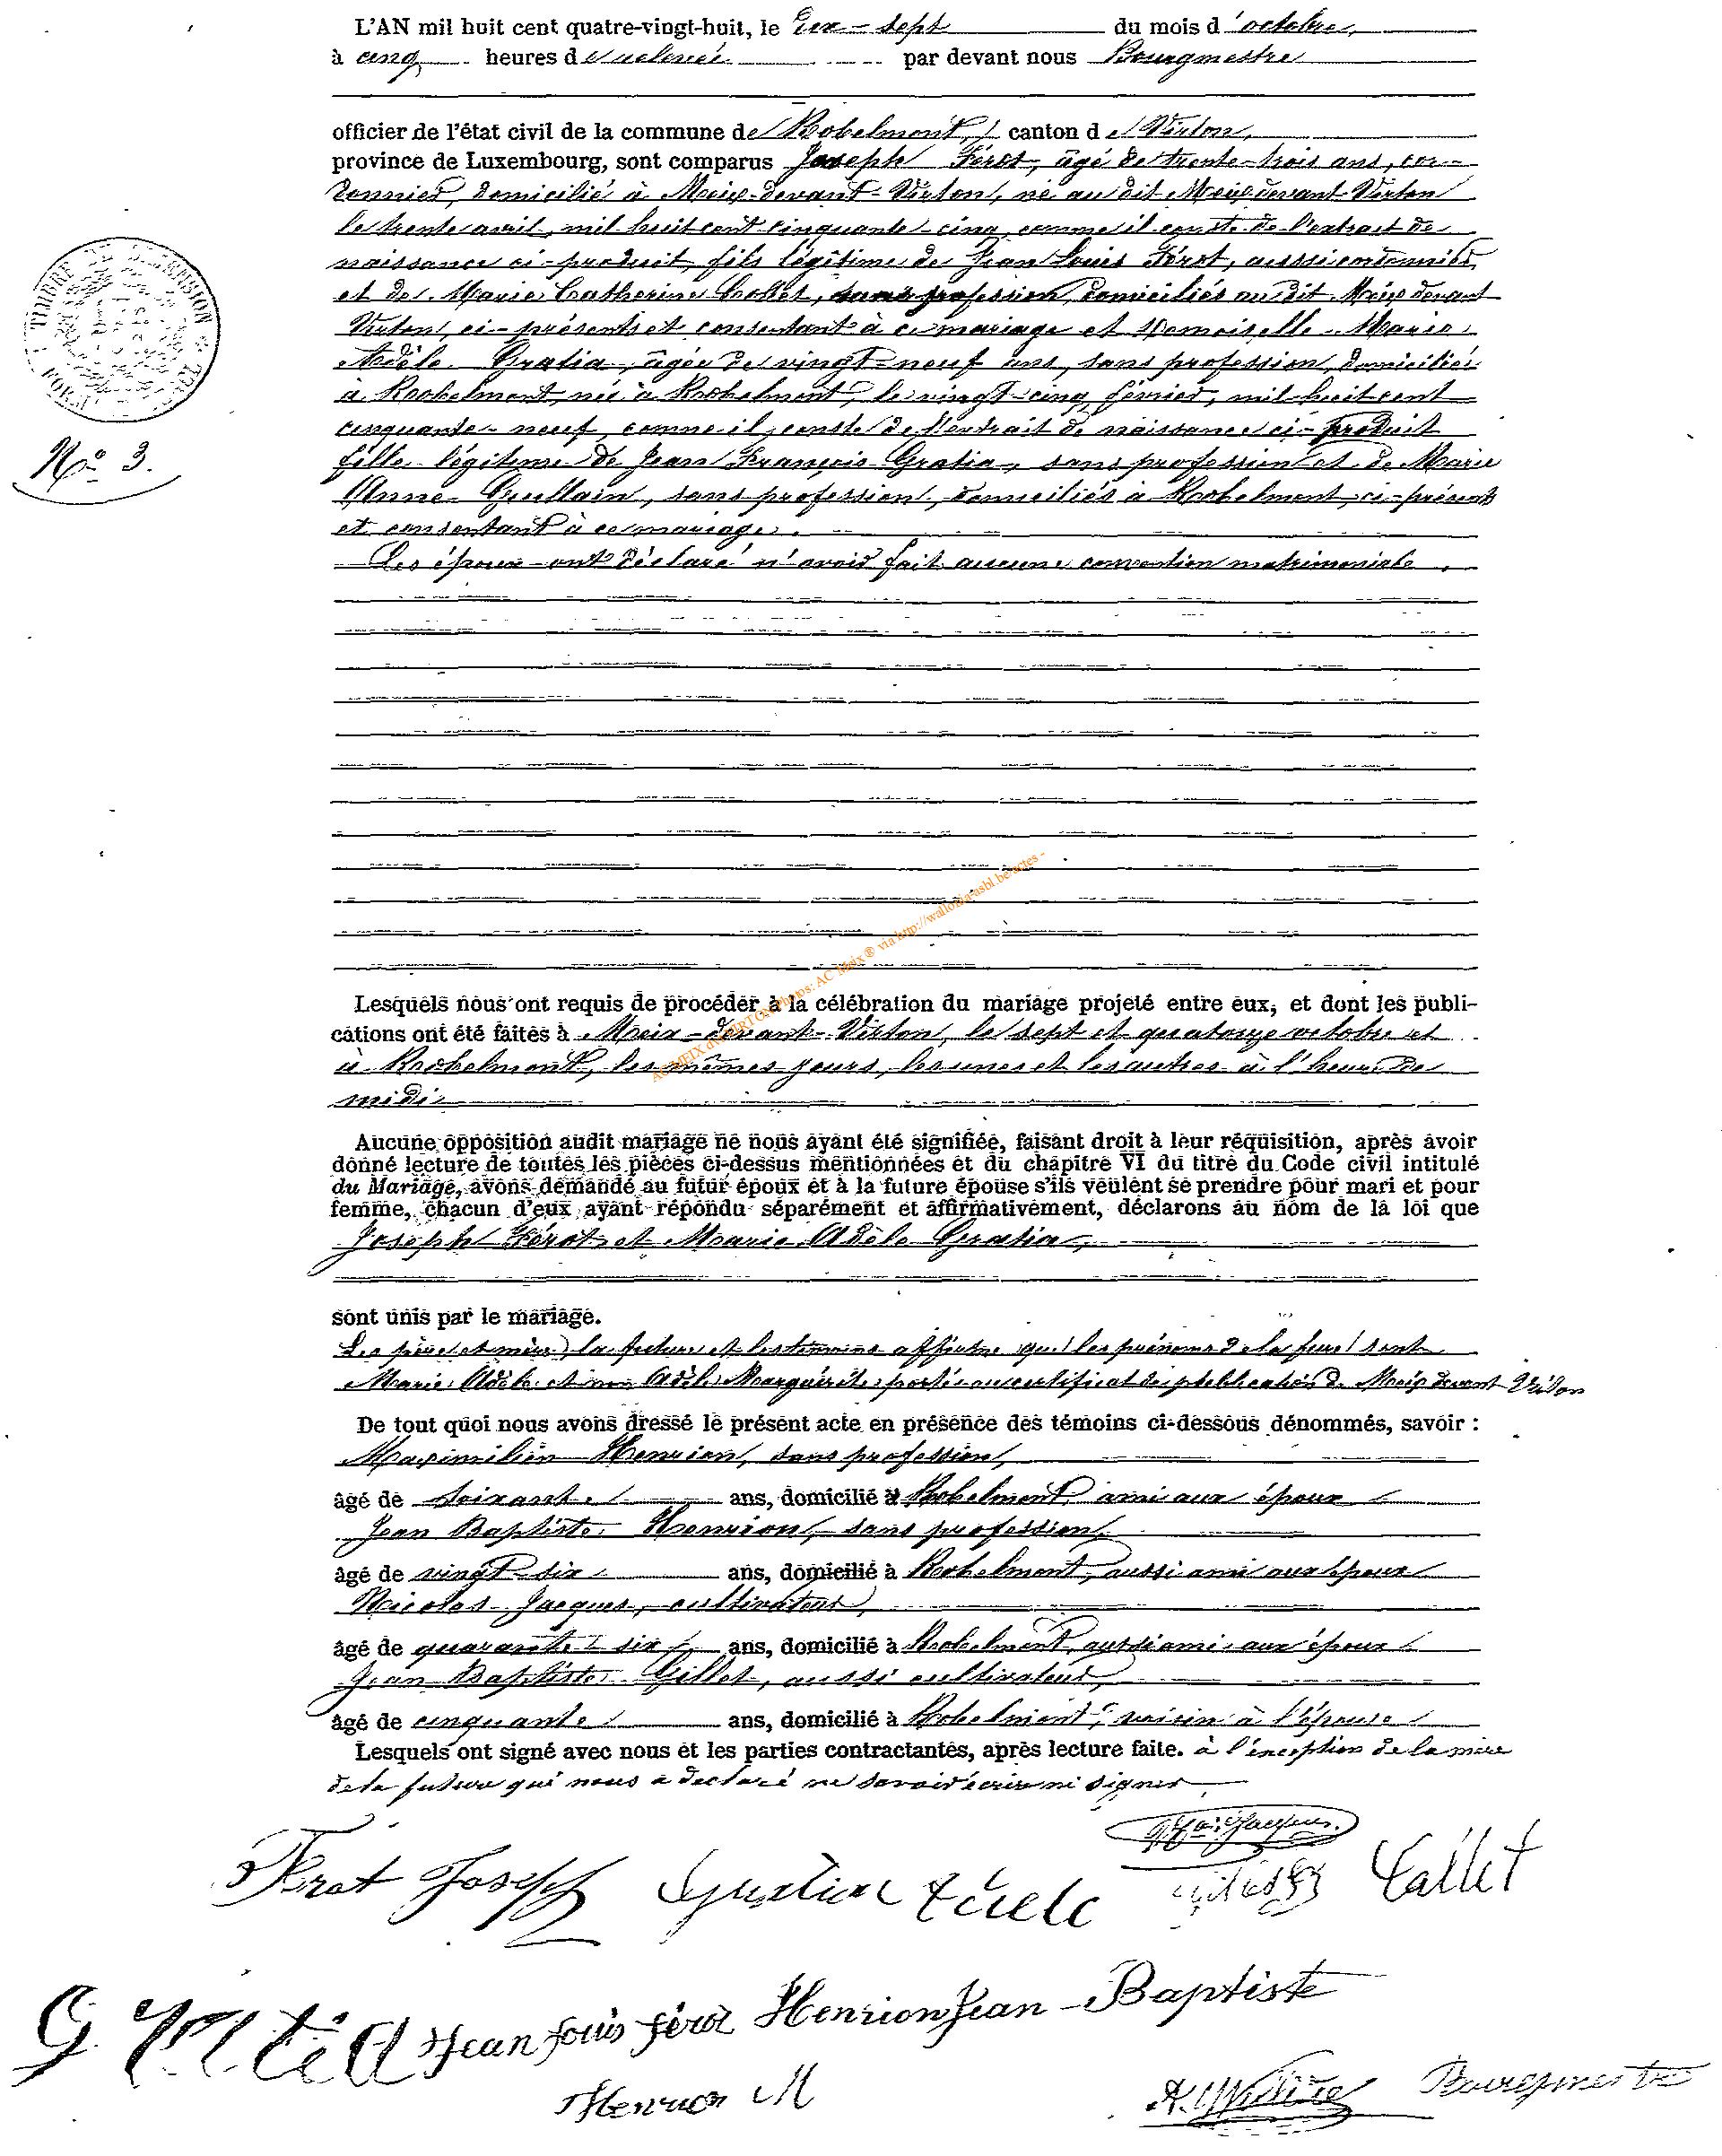 L'AN mil huit cent quatre-vingt-huit, le dix-sept du mois d'octobre,
à cinq heures de relevée par devant nous Bourgmestre
officier de l'état civil de la commune de Robelmont, canton de Virton,
province de Luxembourg, sont comparus Joseph Férot, âgé de trente-trois ans, cor-
donnier, domicilié à Meix-devant-Virton, né au dit Meix devant Virton
le trente avril, mil huit cent cinquante-cinq, comme il conste de l'extrait de
naissance ci-produit, fils légitime de Jean Louis Férot, aussi cordonnier,
et de Marie Catherine Collet, sans profession, domiciliés au dit Meix devant
Virton, ci-présents et consentant à ce mariage et Demoiselle Marie
Adèle Gratia, âgée de vingt-neuf ans, sans profession, domiciliée
à Robelmont, née à Robelmont, le vingt-cinq février, mil huit cent
cinquante-neuf, comme il conste de l'extrait de naissance ci-produit
fille légitime de Jean François Gratia, sans profession et de Marie
Nº 3.
Anne Guillain, sans profession, domiciliés à Robelmont, ci-présents
et consentant à ce mariage.
Les époux ont déclaré n'avoir fait aucune convention matrimoniale.
Lesquels nous ont requis de procéder à la célébration du mariage projeté entre eux, et dont les publi-
cations ont été faites à Meix-devant-Virton, le sept et quatorze octobre et
à Robelmont, les mêmes jours, les unes et les autres à l'heure de
midi
Aucune opposition audit mariage ne nous ayant été signifiée, faisant droit à leur réquisition, après avoir
donné lecture de toutes les pièces ci-dessus mentionnées et du chapitre VI du titre du Code civil intitulé
du Mariage, avons demandé au futur époux et à la future épouse s'ils veulent se prendre pour mari et pour
femme, chacun d'eux ayant répondu séparément et affirmativement, déclarons au nom de la loi que
Joseph Férot et Marie Adèle Gratia,
sont unis par le mariage.
Les père et mère la future et les témoins affirme que les prénoms de la future sont
Marie Adèle et non Adèle Marguerite porté au certificat de publication de Meix devant Virton
De tout quoi nous avons dressé le présent acte en présence des témoins ci-dessous dénommés, savoir :
Maximilien Henrion, sans profession,
âgé de soixante ans, domicilié à Robelmont, ami aux époux
Jean Baptiste Henrion, sans profession,
âgé de vingt-six ans, domicilié à Robelmont, aussi ami aux époux
Nicolas Jacques, cultivateur,
âgé de quarante-six ans, domicilié à Robelmont, aussi ami aux époux
Jean Baptiste Gillet, aussi cultivateur,
âgé de cinquante ans, domicilié à Robelmont, voisin à l'épouse
Lesquels ont signé avec nous et les parties contractantes, après lecture faite. à l'exception de la mère
de la future qui nous a déclaré ne savoir écrire ni signer
Jacques.
Férot Joseph Gratia Adele Collet
Jean Louis Férot Henrion Jean-Baptiste
Henrion M Bourgmestre